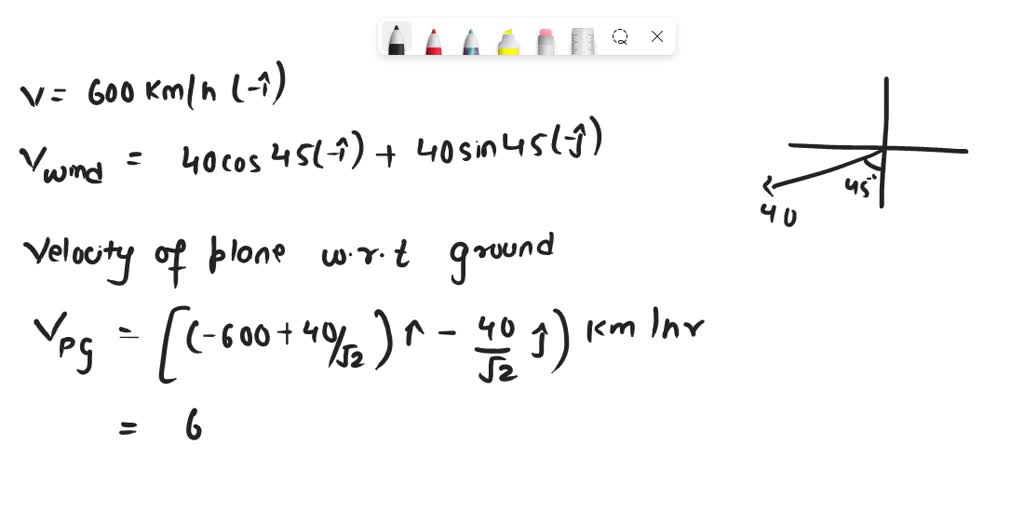 V = 600 Km/h (-î)
Vwind = 40cos 45(-î) + 40sin45(-ĵ)
45°
40
Velocity of plane w.r.t ground
VPG = [(-600 + 40/√2) î - 40/√2 ĵ) Km/hr
= 6